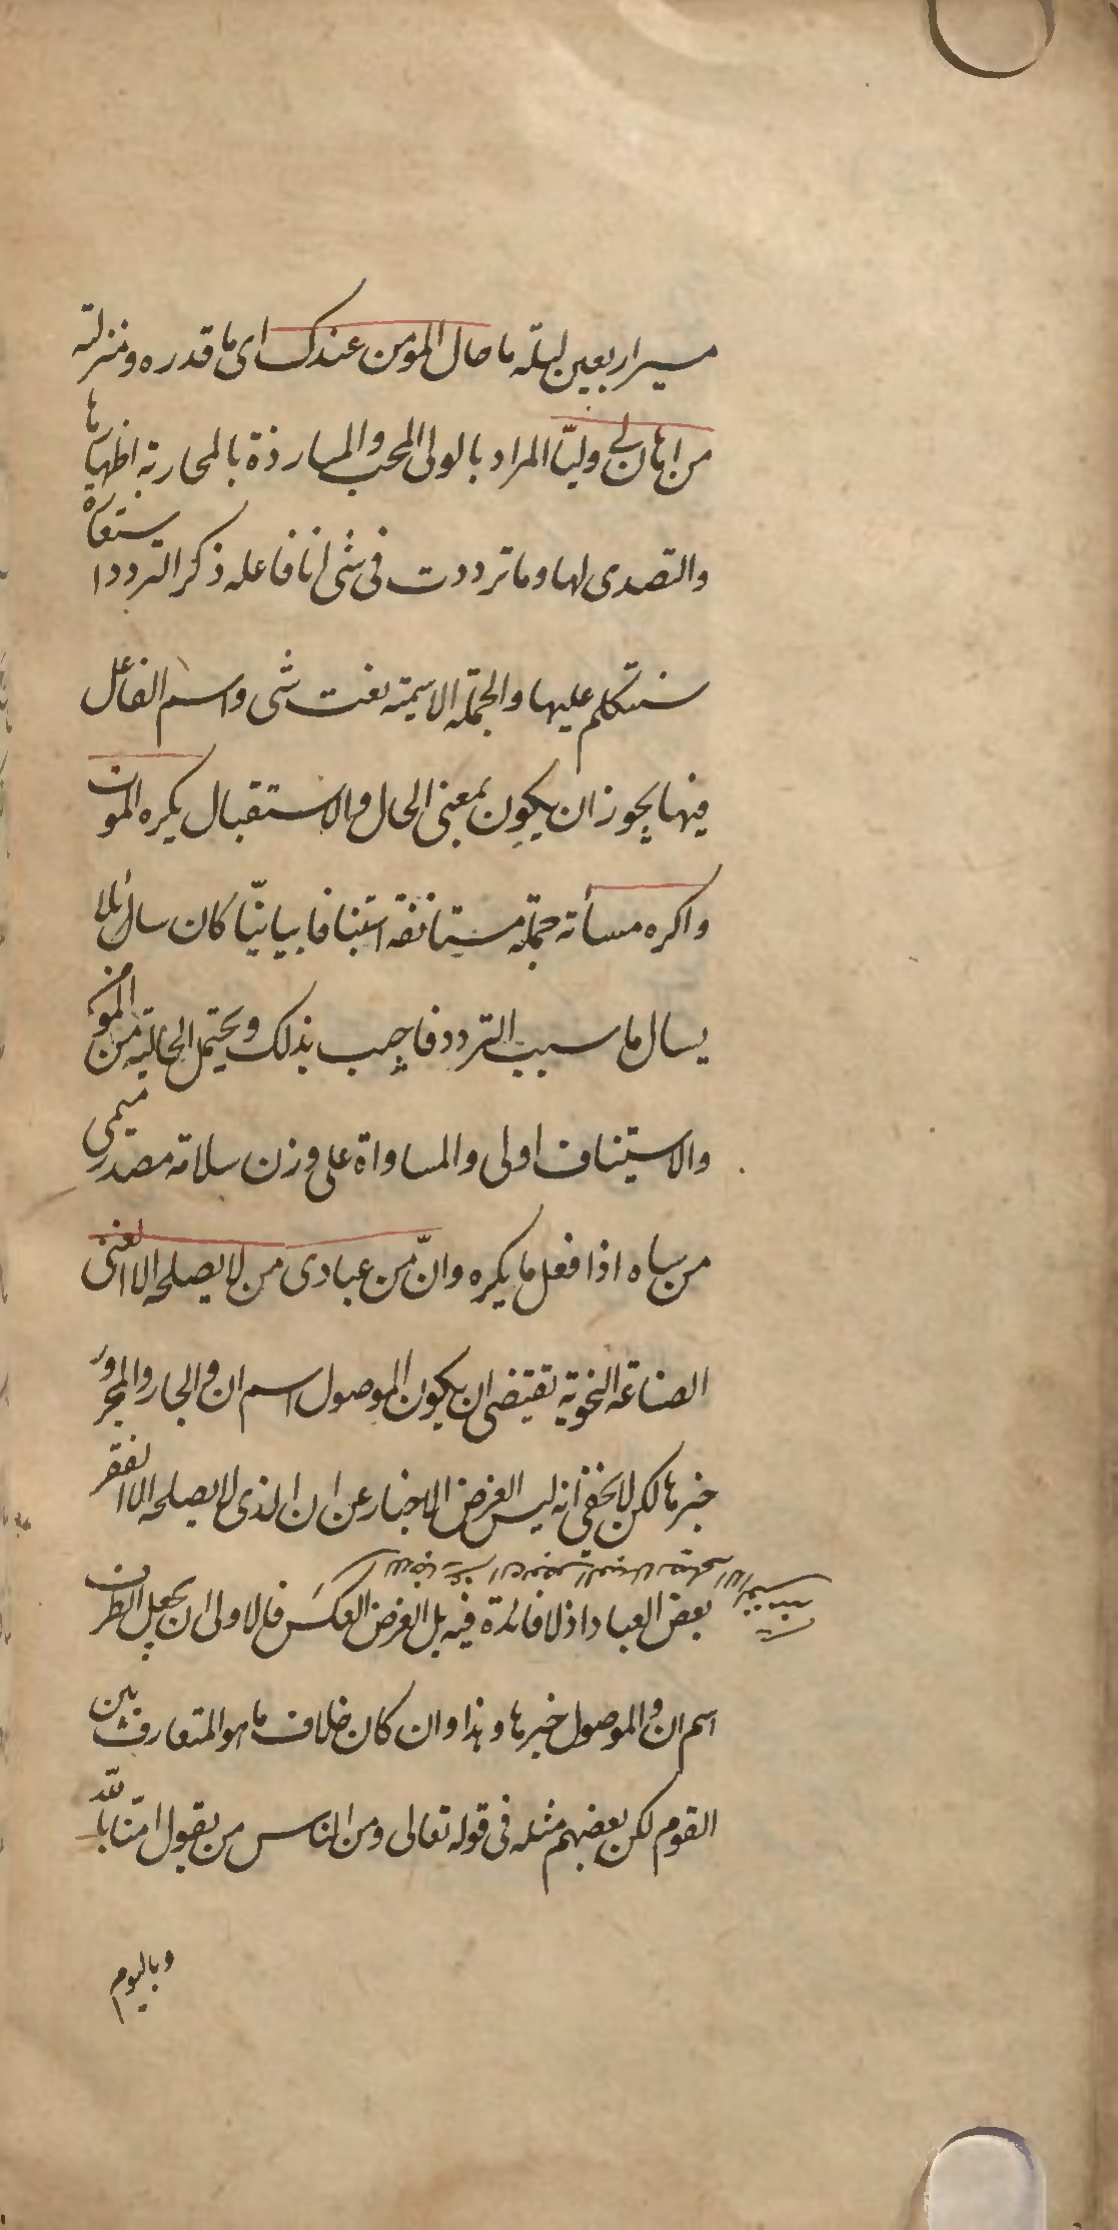 مسير اربعين ليلة ما حال المومن عندك اى ما قدره و منزلته
من اهان لى وليّا المراد بالولى المحب والمبارزة بالمحاربة اظهارها
والتصدى لها وما ترددت فى شى انا فاعله ذكر التردد استعارة
سنتكلم عليها والجملة الاسمية نعت شى واسم الفاعل
فيها يجوز ان يكون بمعنى الحال والاستقبال يكره الموت
واكره مسأته جملة مستانفة استينافا بيانيّا كان سائلا
يسال ما سبب التردد فاجيب بذلك ويحتمل الحالية من المومن
والاستيناف اولى والمساواة على وزن سلامة مصدر ميمى
من ساه اذا فعل ما يكره وانّ من عبادى من لا يصلحه الا الغنى
الصناعة النحوية تقتضى ان يكون الموصول اسم ان والجار والمجرور
خبرها لكن لا يخفى انه ليس الغرض الاخبار عن ان الذى لا يصلحه الا الفقر
بعض العباد اذ لا فائدة فيه بل الغرض العكس فالاولى ان يجعل الظرف
اسم ان والموصول خبرها وهذا وان كان خلاف ما هو المتعارف بين
القوم لكن بعضهم مثله فى قوله تعالى ومن الناس من يقول امنّا بالله
وباليوم